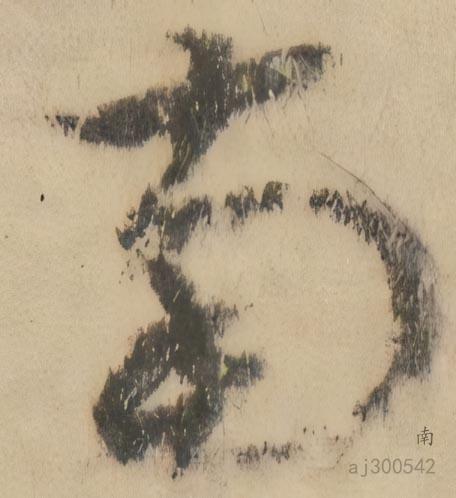 南
南
aj300542